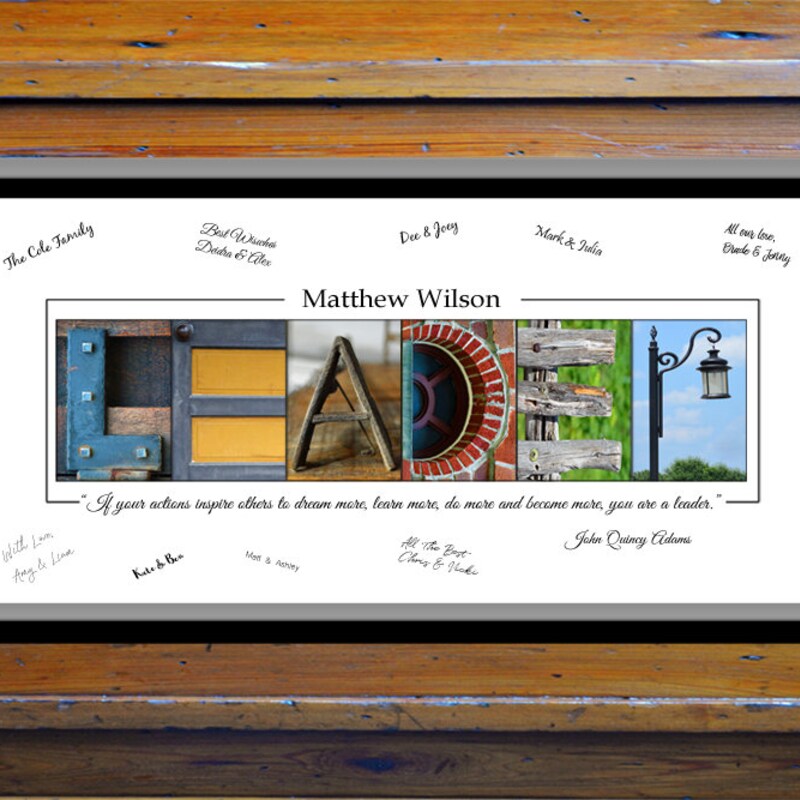 The Cole Family
Best Wisches
Deidra & Alex
Dee & Joey
Mark & Julia
All our love,
& Jenny
Matthew Wilson
LEADER
“ If your actions inspire others to dream more, learn more, do more and become more, you are a leader.”
John Quincy Adams
With Love
Amy & Liam
Kate & Ben
Matt & Ashley
All The Best
Chris & Vicki